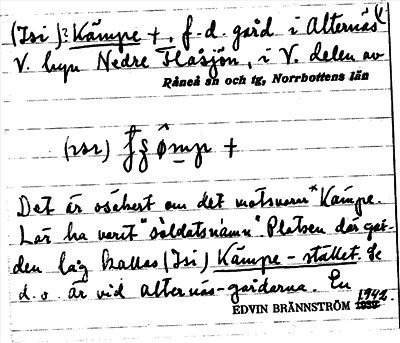 (Isi): Kämpe +, f. d. gård i Alternäs
V. hyn Nedre Flåsjön, i V. delen av
Råneå sn och tg, Norrbottens län
(rsr)
Det är osäkert om det motsvarar "Kämpe.
Lär ha varit "soldatsnamn". Platsen där går-
den låg kallas (Isi) Kämpe-stället. Se
d. o. är vid Alternäs-gårdarna. En
EDVIN BRÄNNSTRÖM 1942.
1939